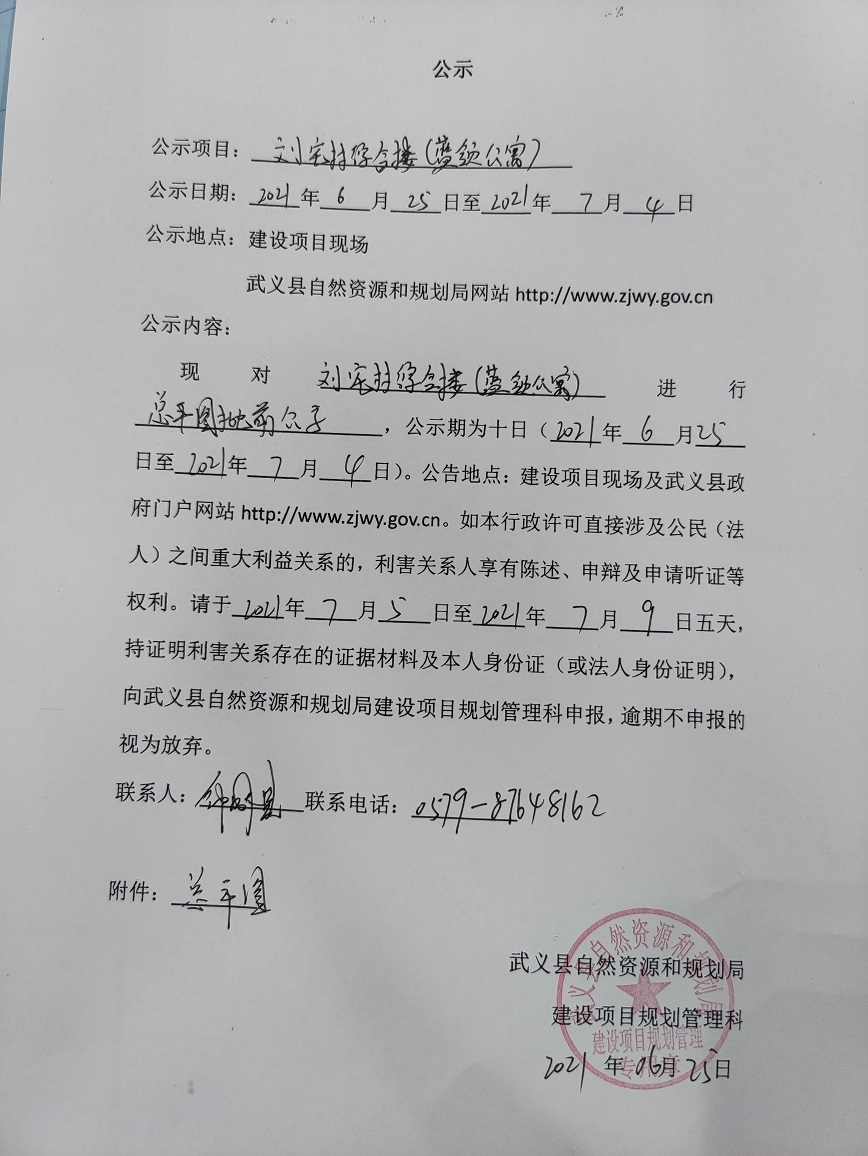 公示
公示项目：刘宅村综合楼（蓝领公寓）
公示日期：2021年6月25日至2021年7月4日
公示地点：建设项目现场
武义县自然资源和规划局网站 http://www.zjwy.gov.cn
公示内容：
现对刘宅村综合楼（蓝领公寓）进行
总平图批前公示，公示期为十日（2021年6月25
日至2021年7月4日）。公告地点：建设项目现场及武义县政
府门户网站 http://www.zjwy.gov.cn。如本行政许可直接涉及公民（法
人）之间重大利益关系的，利害关系人享有陈述、申辩及申请听证等
权利。请于2021年7月5日至2021年7月9日五天，
持证明利害关系存在的证据材料及本人身份证（或法人身份证明），
向武义县自然资源和规划局建设项目规划管理科申报，逾期不申报的
视为放弃。
联系人：联系电话：0579-87648162
附件：总平图
武义县自然资源和规划局
建设项目规划管理科
2021年06月25日
武义县自然资源和规划局
建设项目规划管理
专用章